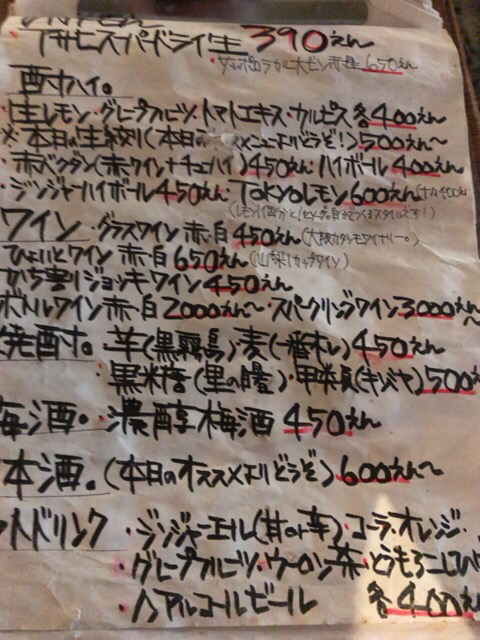 アサヒスーパードライ生 390えん
・サッポロラガー大ビン赤星 650えん
酎ハイ。
・生レモン・グレープフルーツ・トマトエキス・カルピス 各400えん
※本日の生絞り(本日の メニューよりどうぞ!)500えん〜
・赤バクダン(赤ワイン+チューハイ)450えん・ハイボール 400えん
・ジンジャーハイボール450えん・TOKYOレモン600えん
ワイン・グラスワイン 赤・白 450えん(大阪カタシモワイナリー。)
ひょいとワイン 赤・白 650えん(山梨!カップワイン)
かち割りジョッキワイン 450えん
ボトルワイン 赤・白 2000えん〜・スパークリングワイン3000えん〜
焼酎。・芋(黒霧島)・麦(一番札)450えん
・黒糖(里の曙)・甲類 (キンミヤ)500え
梅酒。・濃醇梅酒 450えん
本酒。(本日のオススメよりどうぞ)600えん〜
トドリンク・ジンジャーエール(甘or辛)・コーラ・オレンジ・
・グレープフルーツ・ウーロン茶・とうもろこし
・ノンアルコールビール 各400えん